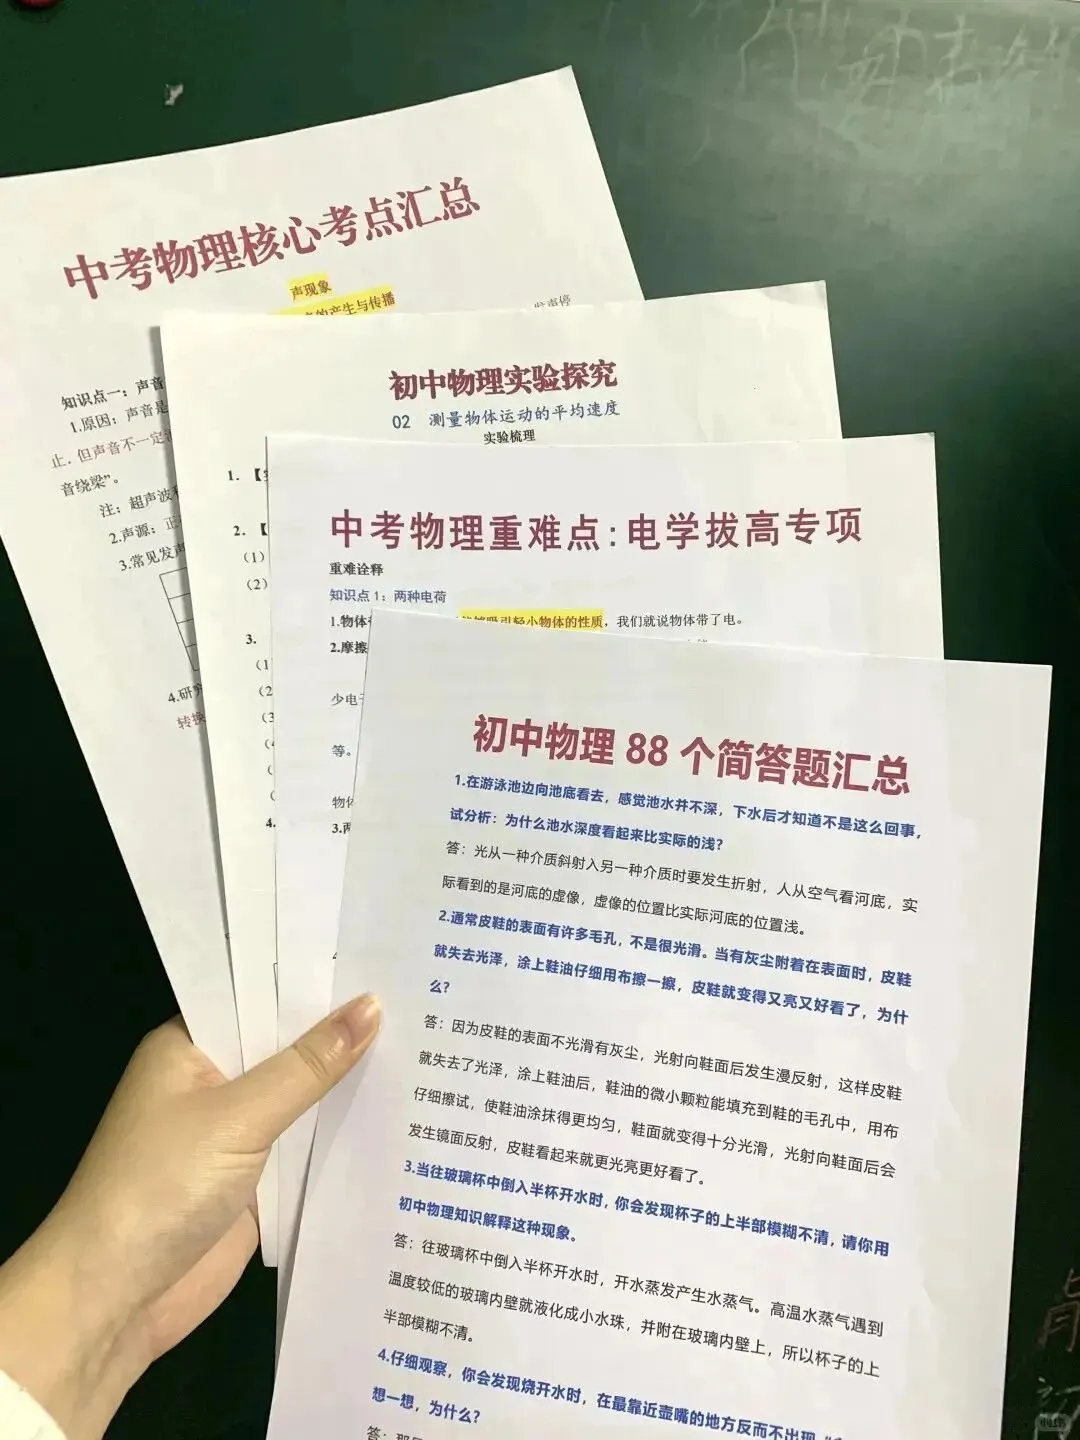 中考物理核心考点汇总
声现象
的产生与传播
发声停
知识点一：声音
1.原因：声音是
止．但声音不一定
音绕梁”。
注：超声波
2.声源：正
3.常见发声
4.研究
转换
初中物理实验探究
02 测量物体运动的平均速度
实验梳理
1.【
2.【
（1）
（2）
3.
（1
（2
（3
（4
（
（
4.
中考物理重难点:电学拔高专项
重难诠释
知识点1：两种电荷
1.物体 能够吸引轻小物体的性质，我们就说物体带了电。
2.摩擦
少电子
等。
物体
3.两
初中物理 88 个简答题汇总
1.在游泳池边向池底看去，感觉池水并不深，下水后才知道不是这么回事，
试分析：为什么池水深度看起来比实际的浅？
答：光从一种介质斜射入另一种介质时要发生折射，人从空气看河底，实
际看到的是河底的虚像，虚像的位置比实际河底的位置浅。
2.通常皮鞋的表面有许多毛孔，不是很光滑。当有灰尘附着在表面时，皮鞋
就失去光泽，涂上鞋油仔细用布擦一擦，皮鞋就变得又亮又好看了，为什
么？
答：因为皮鞋的表面不光滑有灰尘，光射向鞋面后发生漫反射，这样皮鞋
就失去了光泽，涂上鞋油后，鞋油的微小颗粒能填充到鞋的毛孔中，用布
仔细擦试，使鞋油涂抹得更均匀，鞋面就变得十分光滑，光射向鞋面后会
发生镜面反射，皮鞋看起来就更光亮更好看了。
3.当往玻璃杯中倒入半杯开水时，你会发现杯子的上半部模糊不清，请你用
初中物理知识解释这种现象。
答：往玻璃杯中倒入半杯开水时，开水蒸发产生水蒸气。高温水蒸气遇到
温度较低的玻璃内壁就液化成小水珠，并附在玻璃内壁上，所以杯子的上
半部模糊不清。
4.仔细观察，你会发现烧开水时，在最靠近壶嘴的地方反而不出现“
想一想，为什么？
答：那